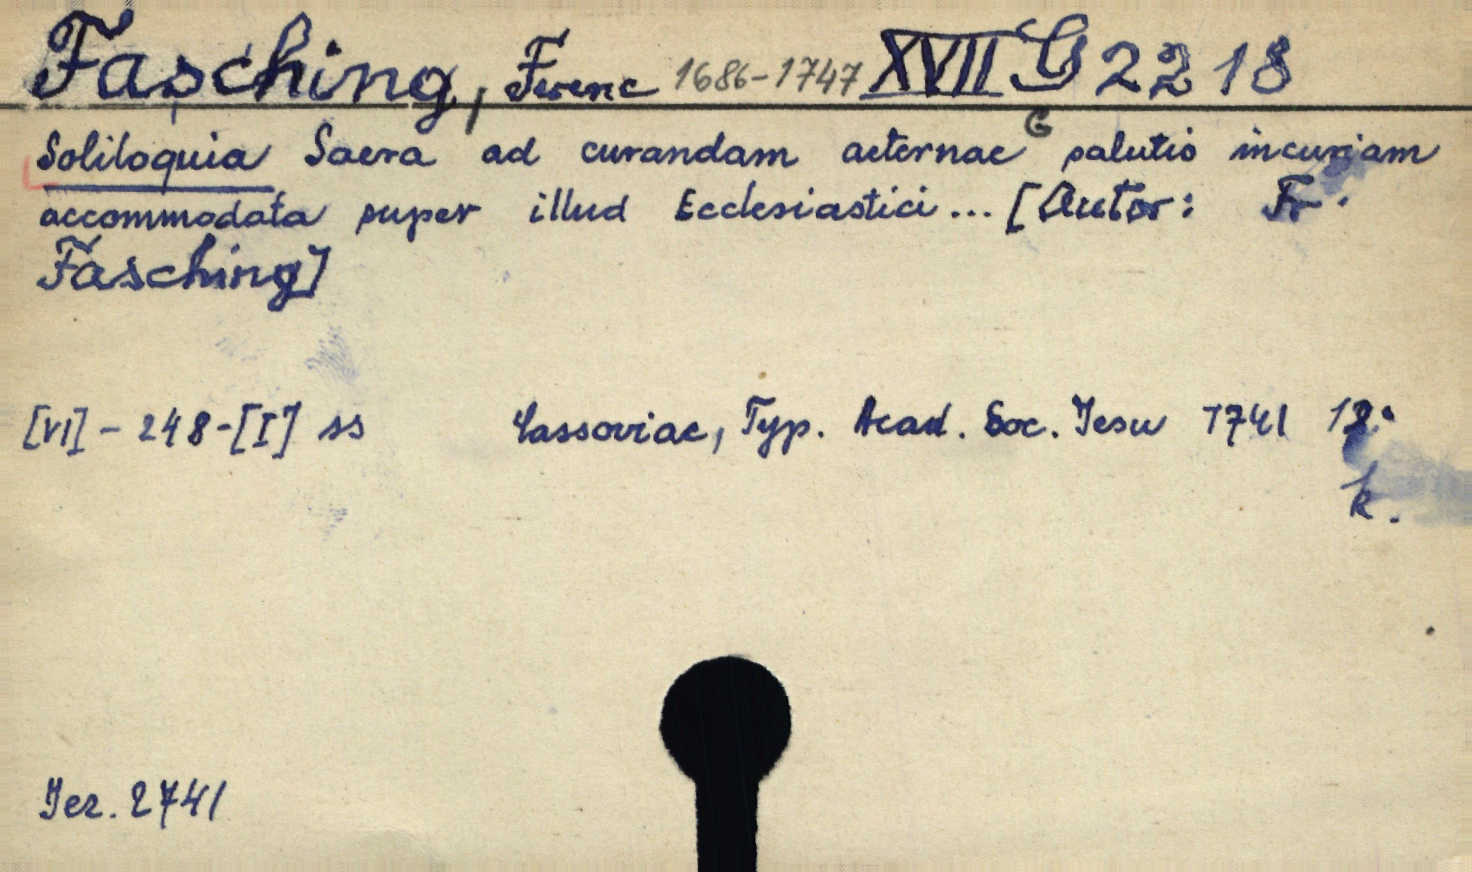 Fasching, Ferenc 1686-1747 XVII G 2218
G
Soliloquia Sacra ad curandam aeternae salutis incuriam
accommodata super illud Ecclesiastici... [Autor: Fr.
Fasching]
[VI] - 248-[I] ss Cassoviae, Typ. Acad. Soc. Jesu 1741 12.
k.
Jez. 2741